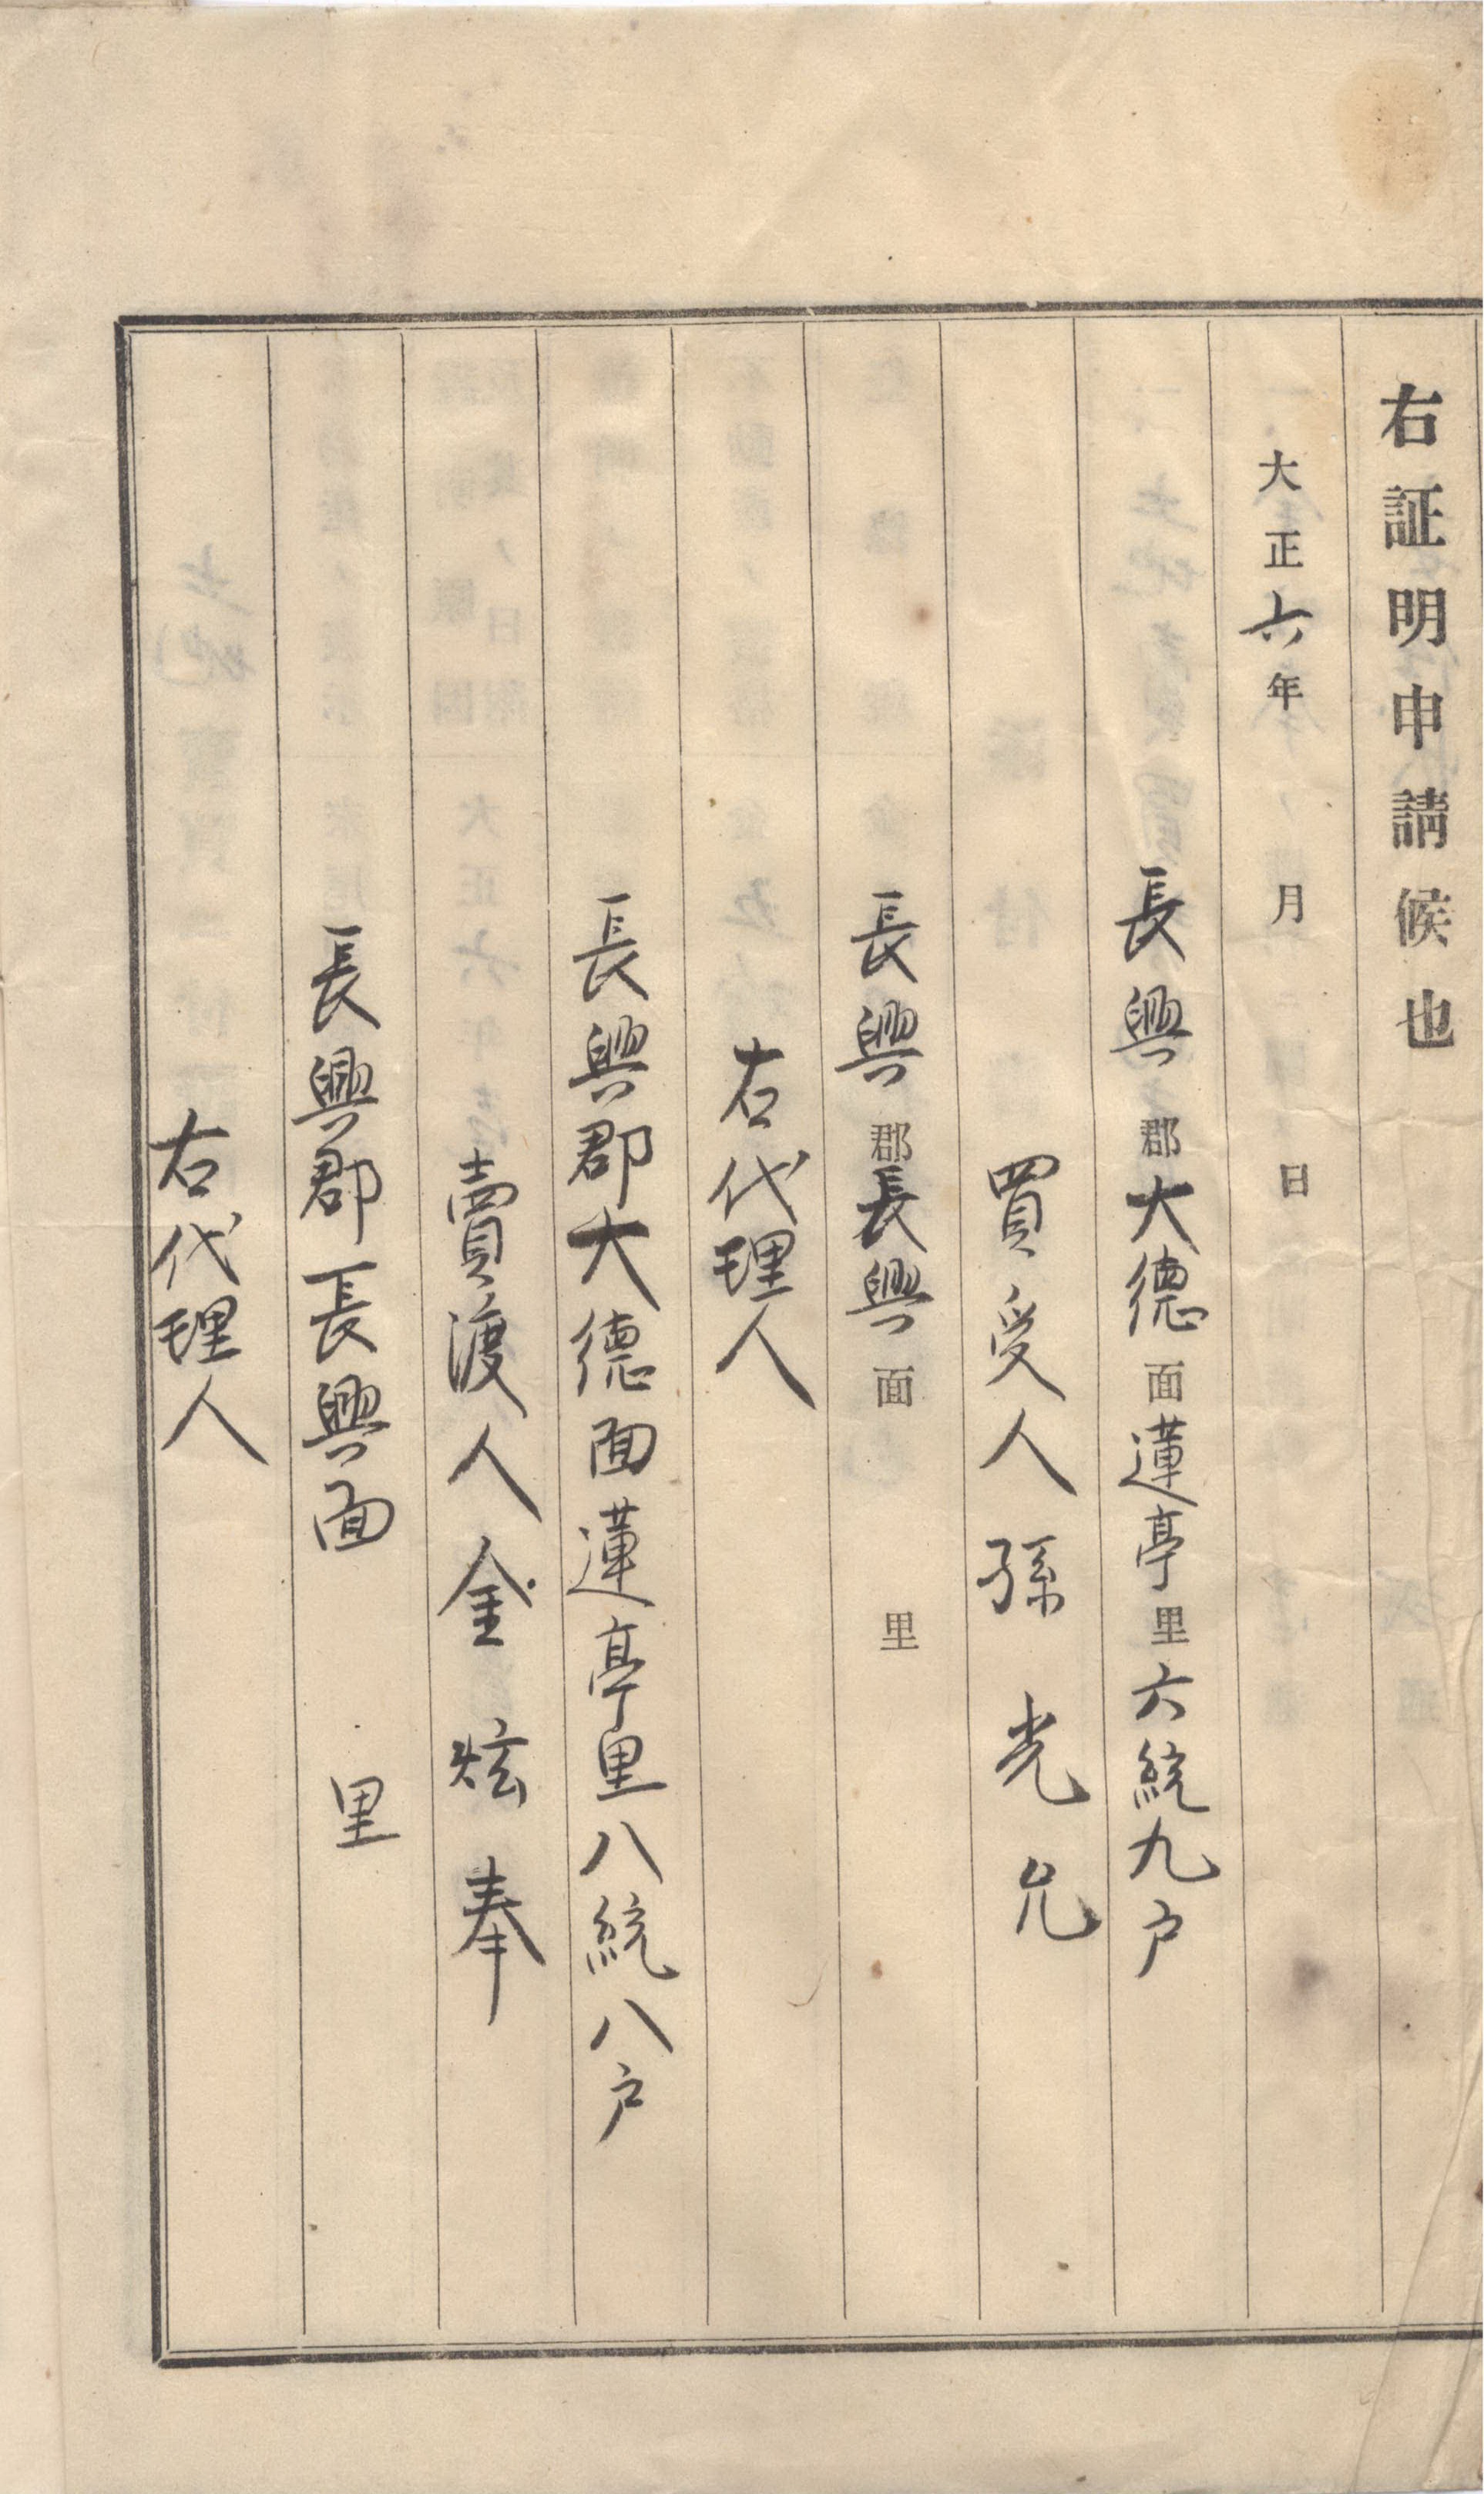 右証明申請候也
大正六年 月 日
長興郡大德面蓮亭里六統九戶
買受人 孫光允
長興郡長興面 里
右代理人
長興郡大德面蓮亭里八統八戶
賣渡人 金炫奉
長興郡長興面 里
右代理人